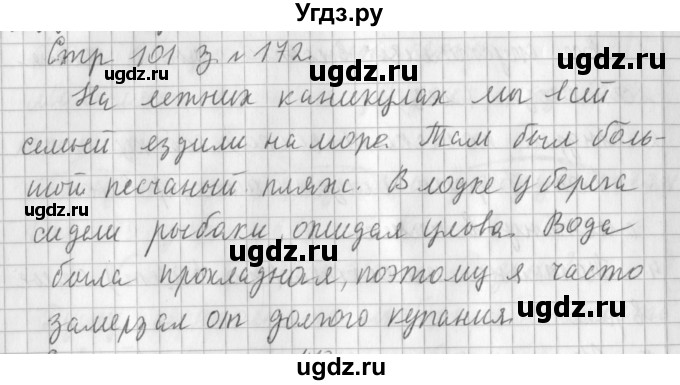 Угдз.ру
Стр 101 з № 172.
На летних каникулах мы всей
семьей ездили на море. Там был боль-
шой песчаный пляж. В лодке у берега
сидели рыбаки, ожидая улова. Вода
была прохладная, поэтому я часто
замерзал от долгого купания.
ugdz.ru
ugdz.ru
ugdz.ru
ugdz.ru
ugdz.ru
ugdz.ru
ugdz.ru
ugdz.ru
ugdz.ru
ugdz.ru
ugdz.ru